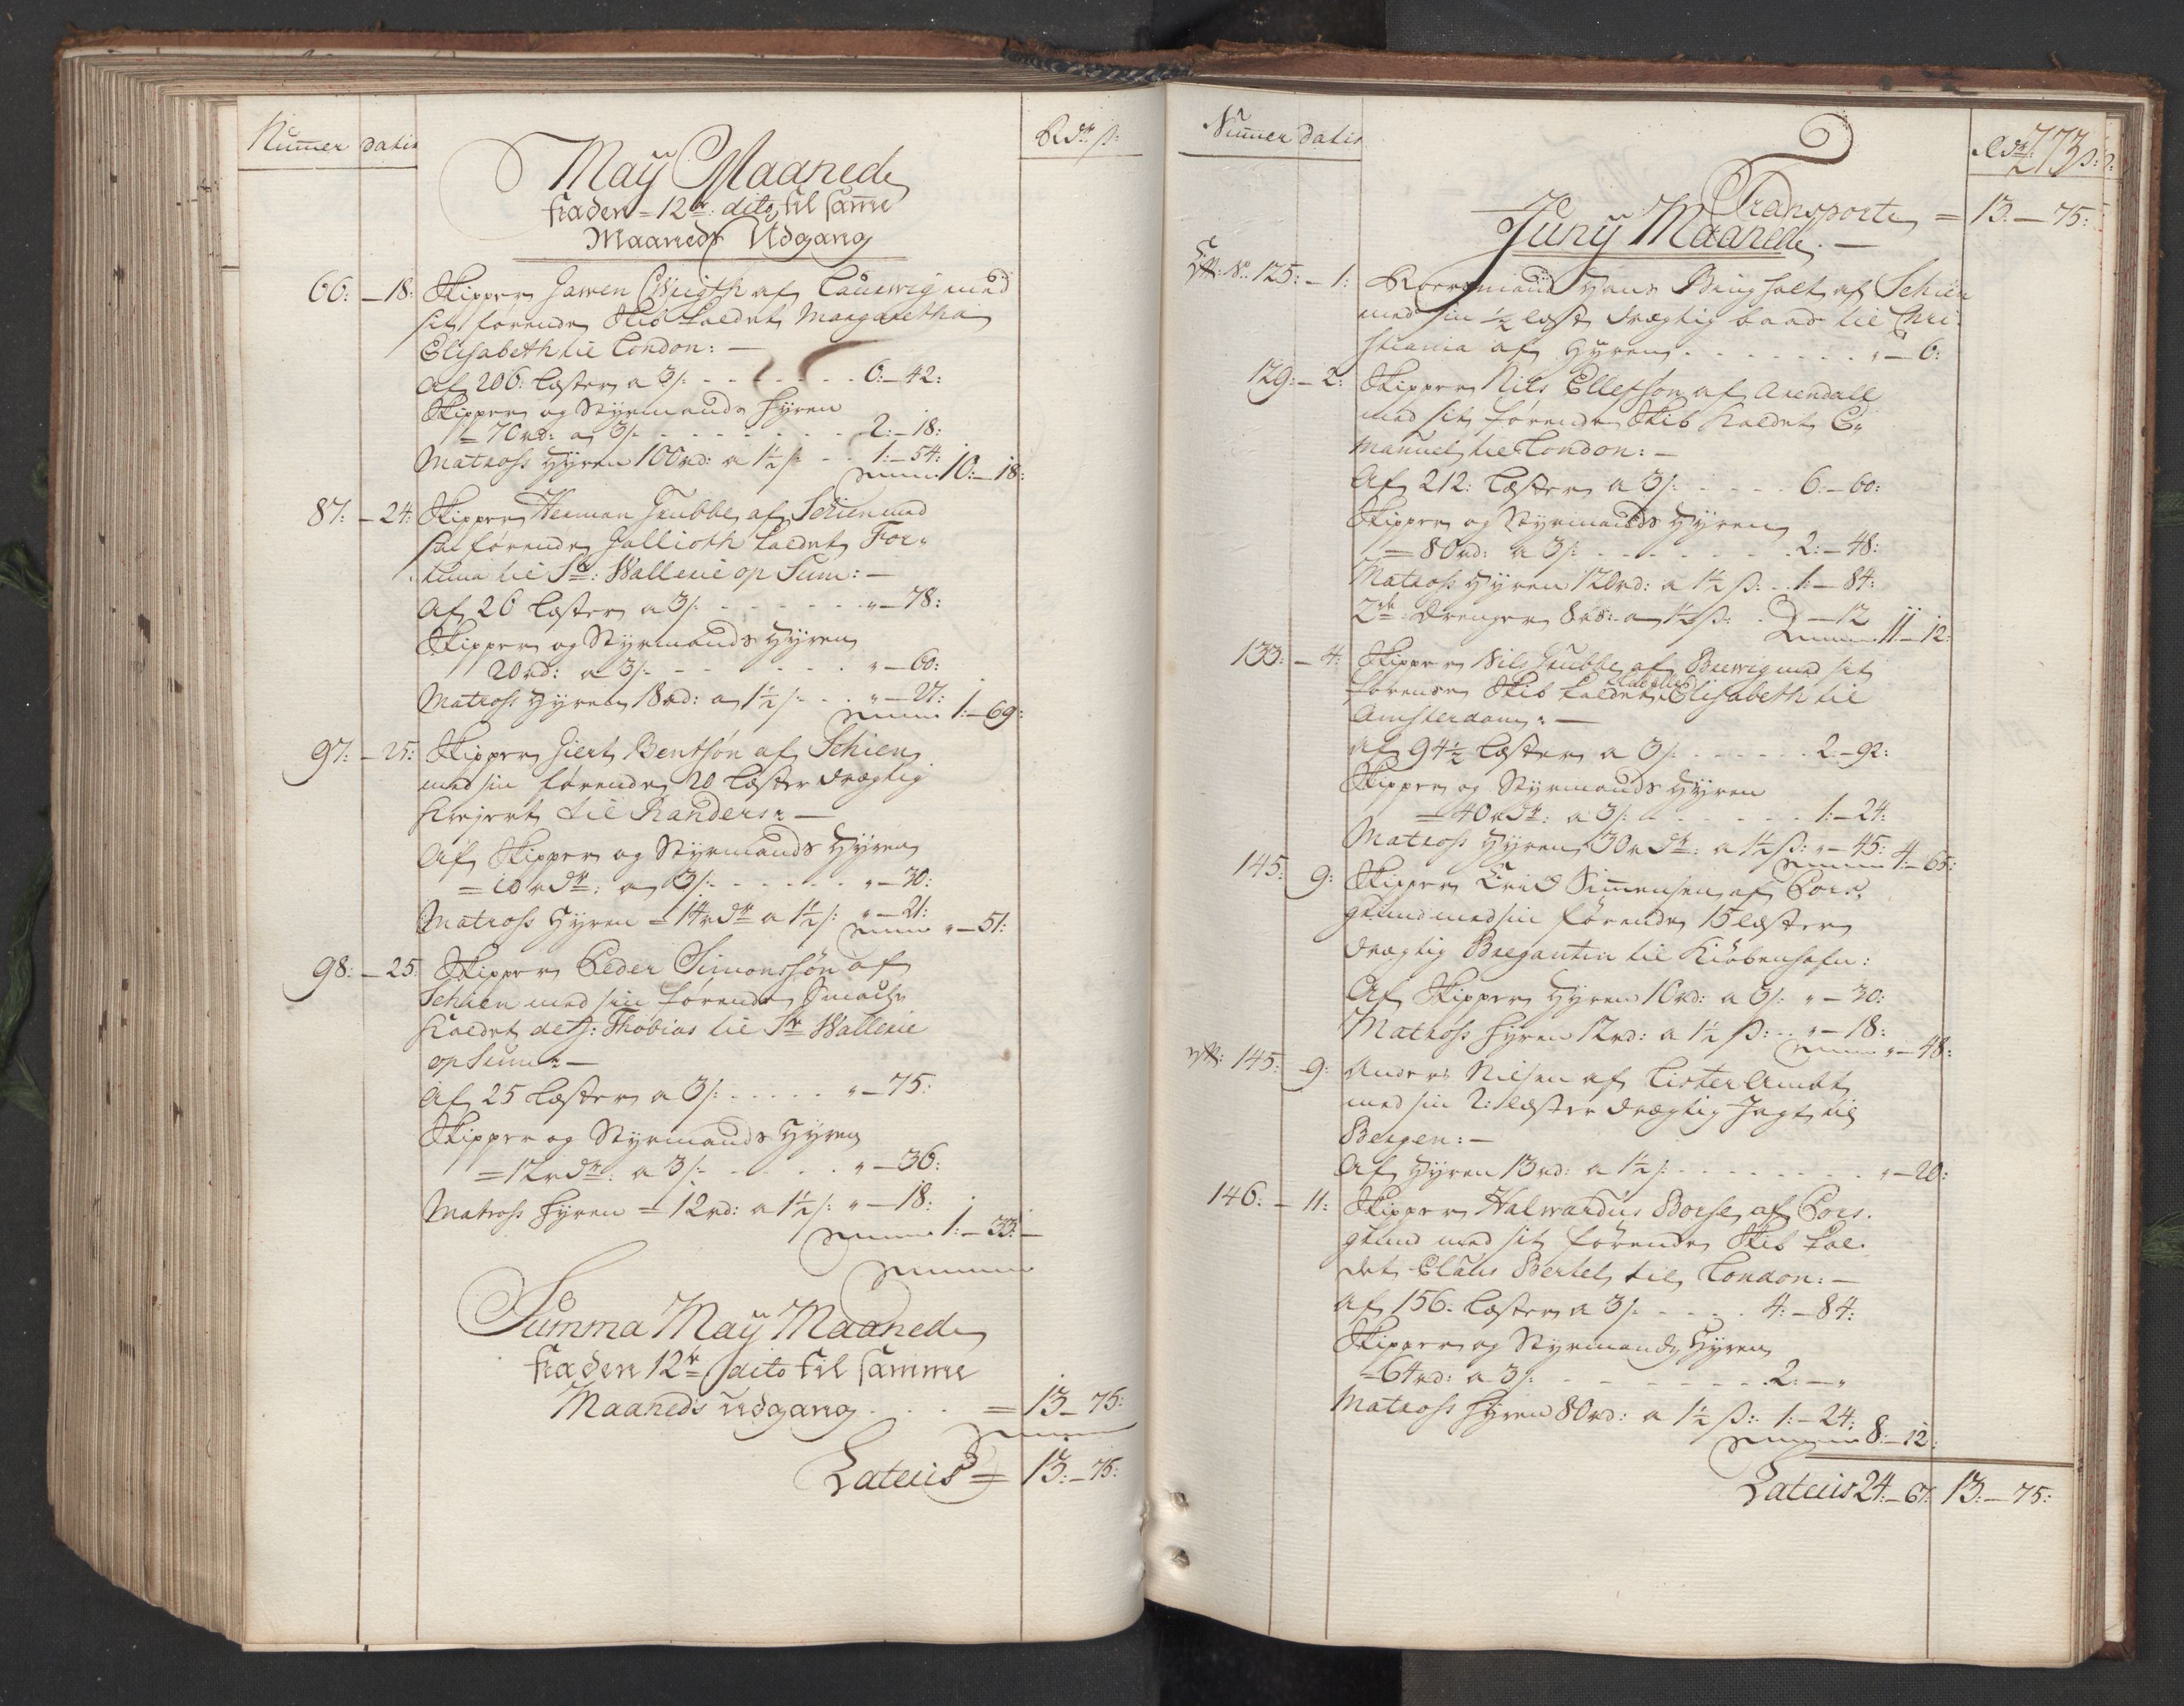 Numer datis
Rdr. ß:
May Maanede
fra den 12te: dito til samme
Maaneds Udgang
66: – 18: Skipper Jawen Wrigth af Laurwig med
sit førende Skib kaldet Margaretha
Elisabeth til London: –
Af 206: Læster a 3/: 6: – 42:
Skipper og Styrmands Hyren
= 70 rd: a 3/: 2: – 18:
Matross Hyren 100 rd: a 1½ /: 1: – 54:
10: – 18:
87: – 24: Skipper Herman Grubbe af Schien med
sin førende Gallioth kaldet For-
tuna til St: Wallerie op Sum: –
Af 26 Læster a 3/: " – 78:
Skipper og Styrmands Hyren
20 rd: a 3/: " – 60:
Matross Hyren 18 rd: a 1½ /: " – 27:
1: – 69:
97: – 25: Skipper Giert Bentsøn af Schien
med sin førende 20 Læster drægtig
Krejert til Randers: –
Af Skipper og Styrmands Hyren
= 10 rdr: a 3/: " – 30:
Matross Hyren = 14 rdr a 1½ /: " – 21:
" – 51:
98: – 25 Skipper Peder Simonssøn af
Schien med sin førende Smache
Kaldet de J: Thobias til St Wallerie
op Sum: –
Af 25 Læster a 3/: " – 75:
Skipper og Styrmands Hyren
= 12 rdr: a 3/: " – 36:
Matross Hyren = 12 rd: a 1½ /: " – 18:
1: – 33: –
Summa May Maanede
fra den 12te dito til samme
Maaneds Udgang = 13 – 75:
Lateris = 13: – 75:
Numer datis
Rdr: ß:
273
Transporte = 13. – 75:
Juny Maanede. –
No. 125: – 1: Hans Bingholt af Schien
med sin ½ Læst drægtig baad til Chri-
stiania af Hyren " – 6:
129: – 2: Skipper Nils Ellefsøn af Arendall
med sit førende Skib Kaldet E-
manuel til London: –
Af 212: Læster a 3/: 6: – 60:
Skipper og Styrmands Hyren
= 80 rd: a 3/: 2: – 48:
Matross Hyren 120 rd: a 1½ ß: 1: – 84:
2de Drenger 8 rd: a 1½ ß: " – 12
11: – 12:
133: – 4: Skipper Nils Grubbe af Brewig med sit
førende Skib kaldet Elisabeth til
Amsterdam: –
Af 94½ Læster a 3/: 2 – 92:
Skipper og Styrmands Hyren
= 40 rdr: a 3/: 1: – 24:
Matross Hyren 30 rdr: a 1½ ß: " – 45:
4: – 65:
145: 9: Skipper Erid Simmensen af Pors-
grund med sin førende 15 Læster
drægtig Bregantin til Kiøbenhafn:
Af Skipper Hyren 10 rd: a 3/: " – 30:
Matross Hyren 12 rd: a 1½ ß: " – 18:
" – 48:
145: 9: Anders Nilsen af Lister Ambt
med sin 2: Læster drægtig Jagt til
Bergen: –
Af Hyren 13 rd: a 1½ /: " – 20:
146: – 11: Skipper Halwardus Borse af Pors-
grund med sit førende Skib kal-
det Claus Bertel til London: –
Af 156. Læster a 3/: 4: – 84:
Skipper og Styrmands Hyren
= 64 rd: a 3/: 2: – "
Matross Hyren 80 rd: a 1½ ß: 1: – 24:
8: – 12:
Lateris 24: – 67: 13: – 75: